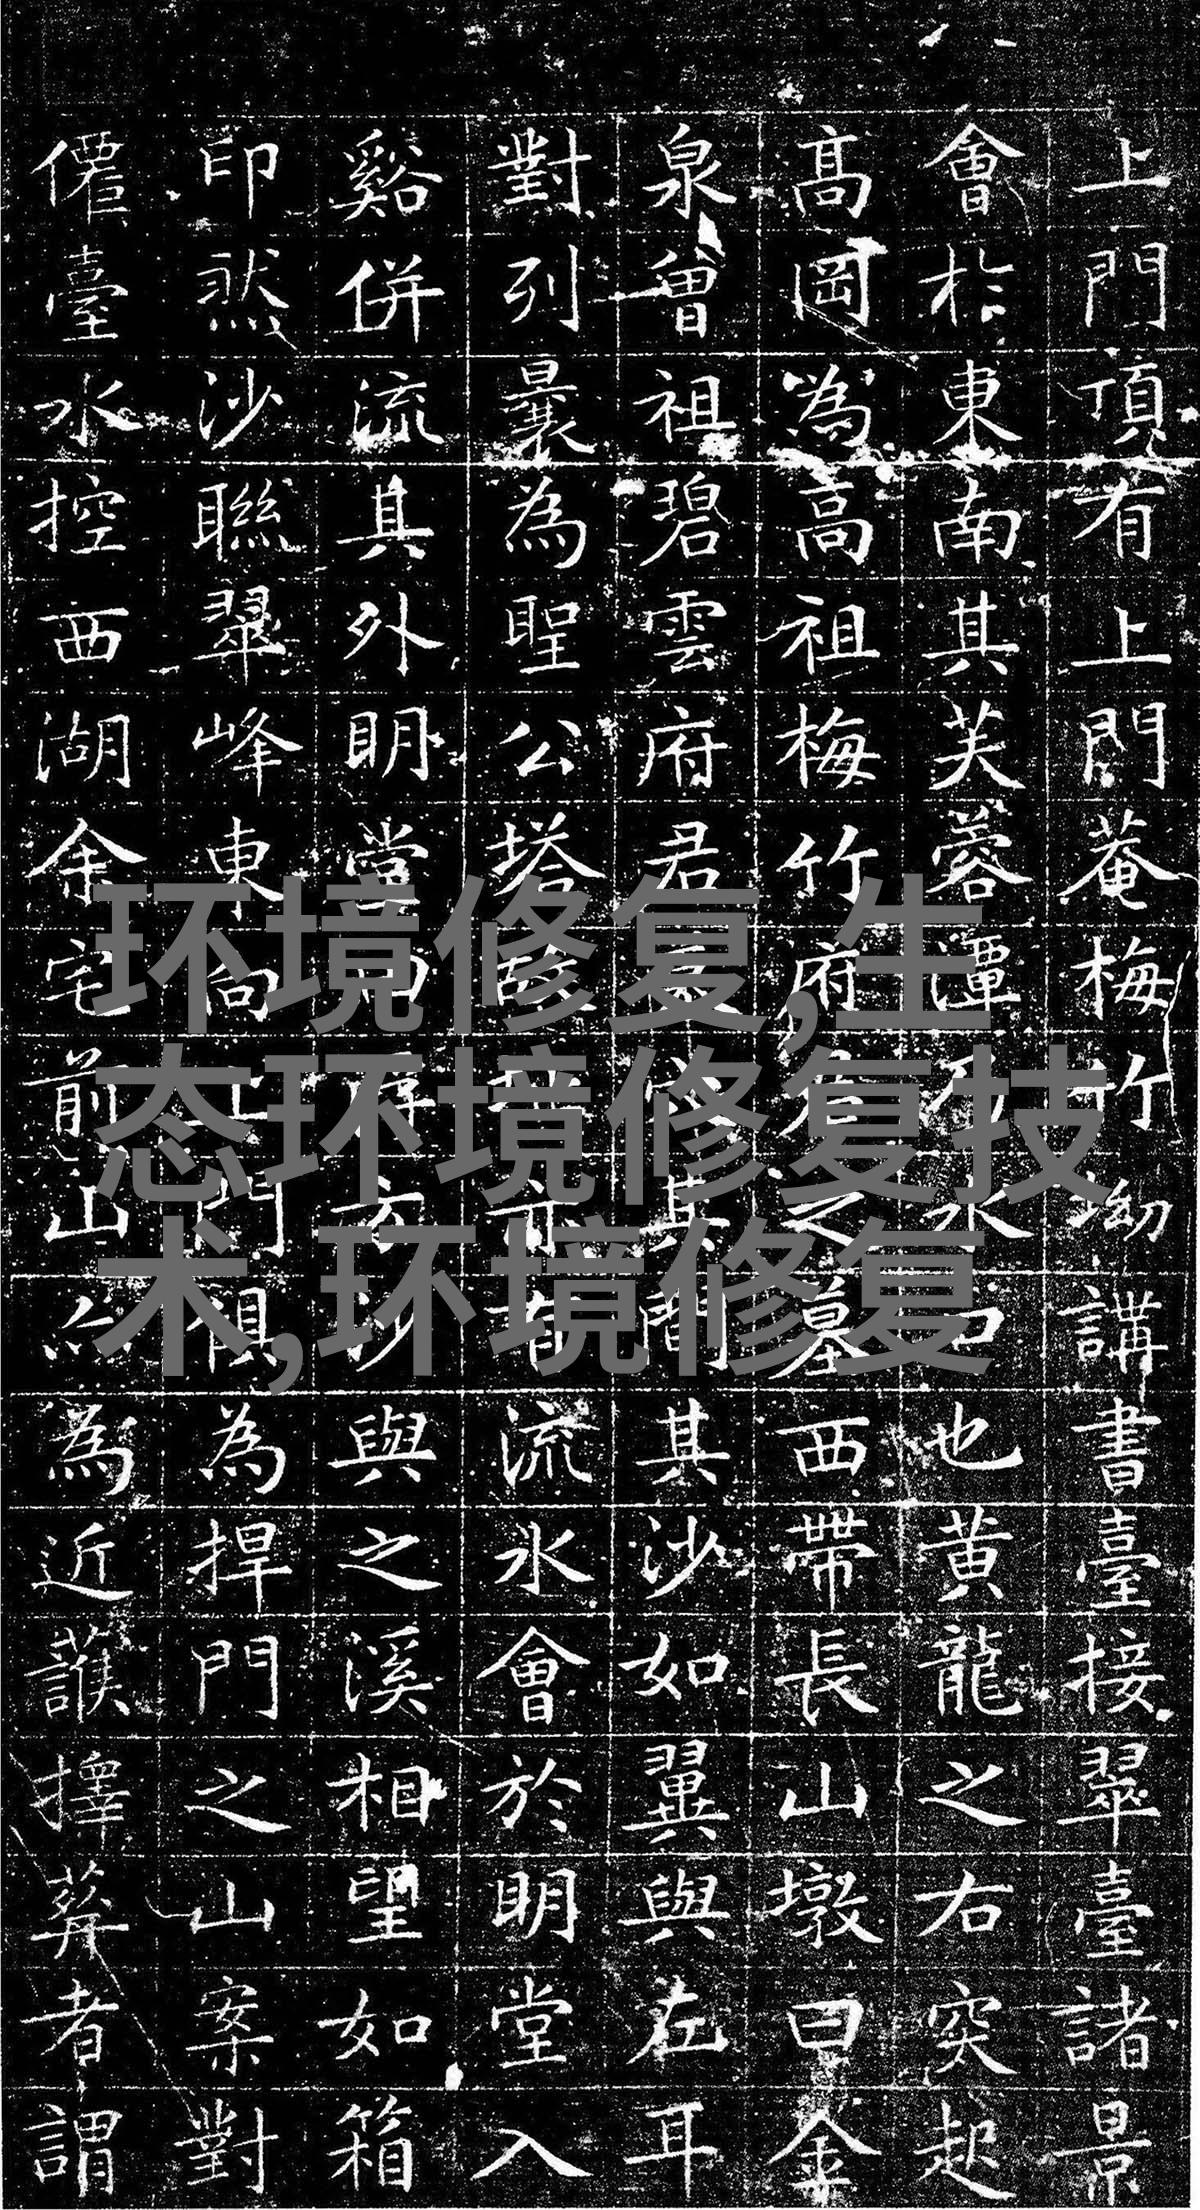 上門頂有上門菴梅竹坳講書臺接翠臺諸景
會於東南其芙蓉潭乃水口也黃龍之右突起
高岡為高祖梅竹府君之墓西帶長山墩曰金
泉曾祖碧雲府君其間其沙如翼與左耳
對列曩為聖公塔有流水會於明堂入
谿併流其外明堂沙與之溪相望如箱
印然沙聯翠峰東向上門俱為捍門之山案對
僊臺水控西湖余宅前山為近護擇葬者謂
环境修复,生
态环境修复技
术,环境修复